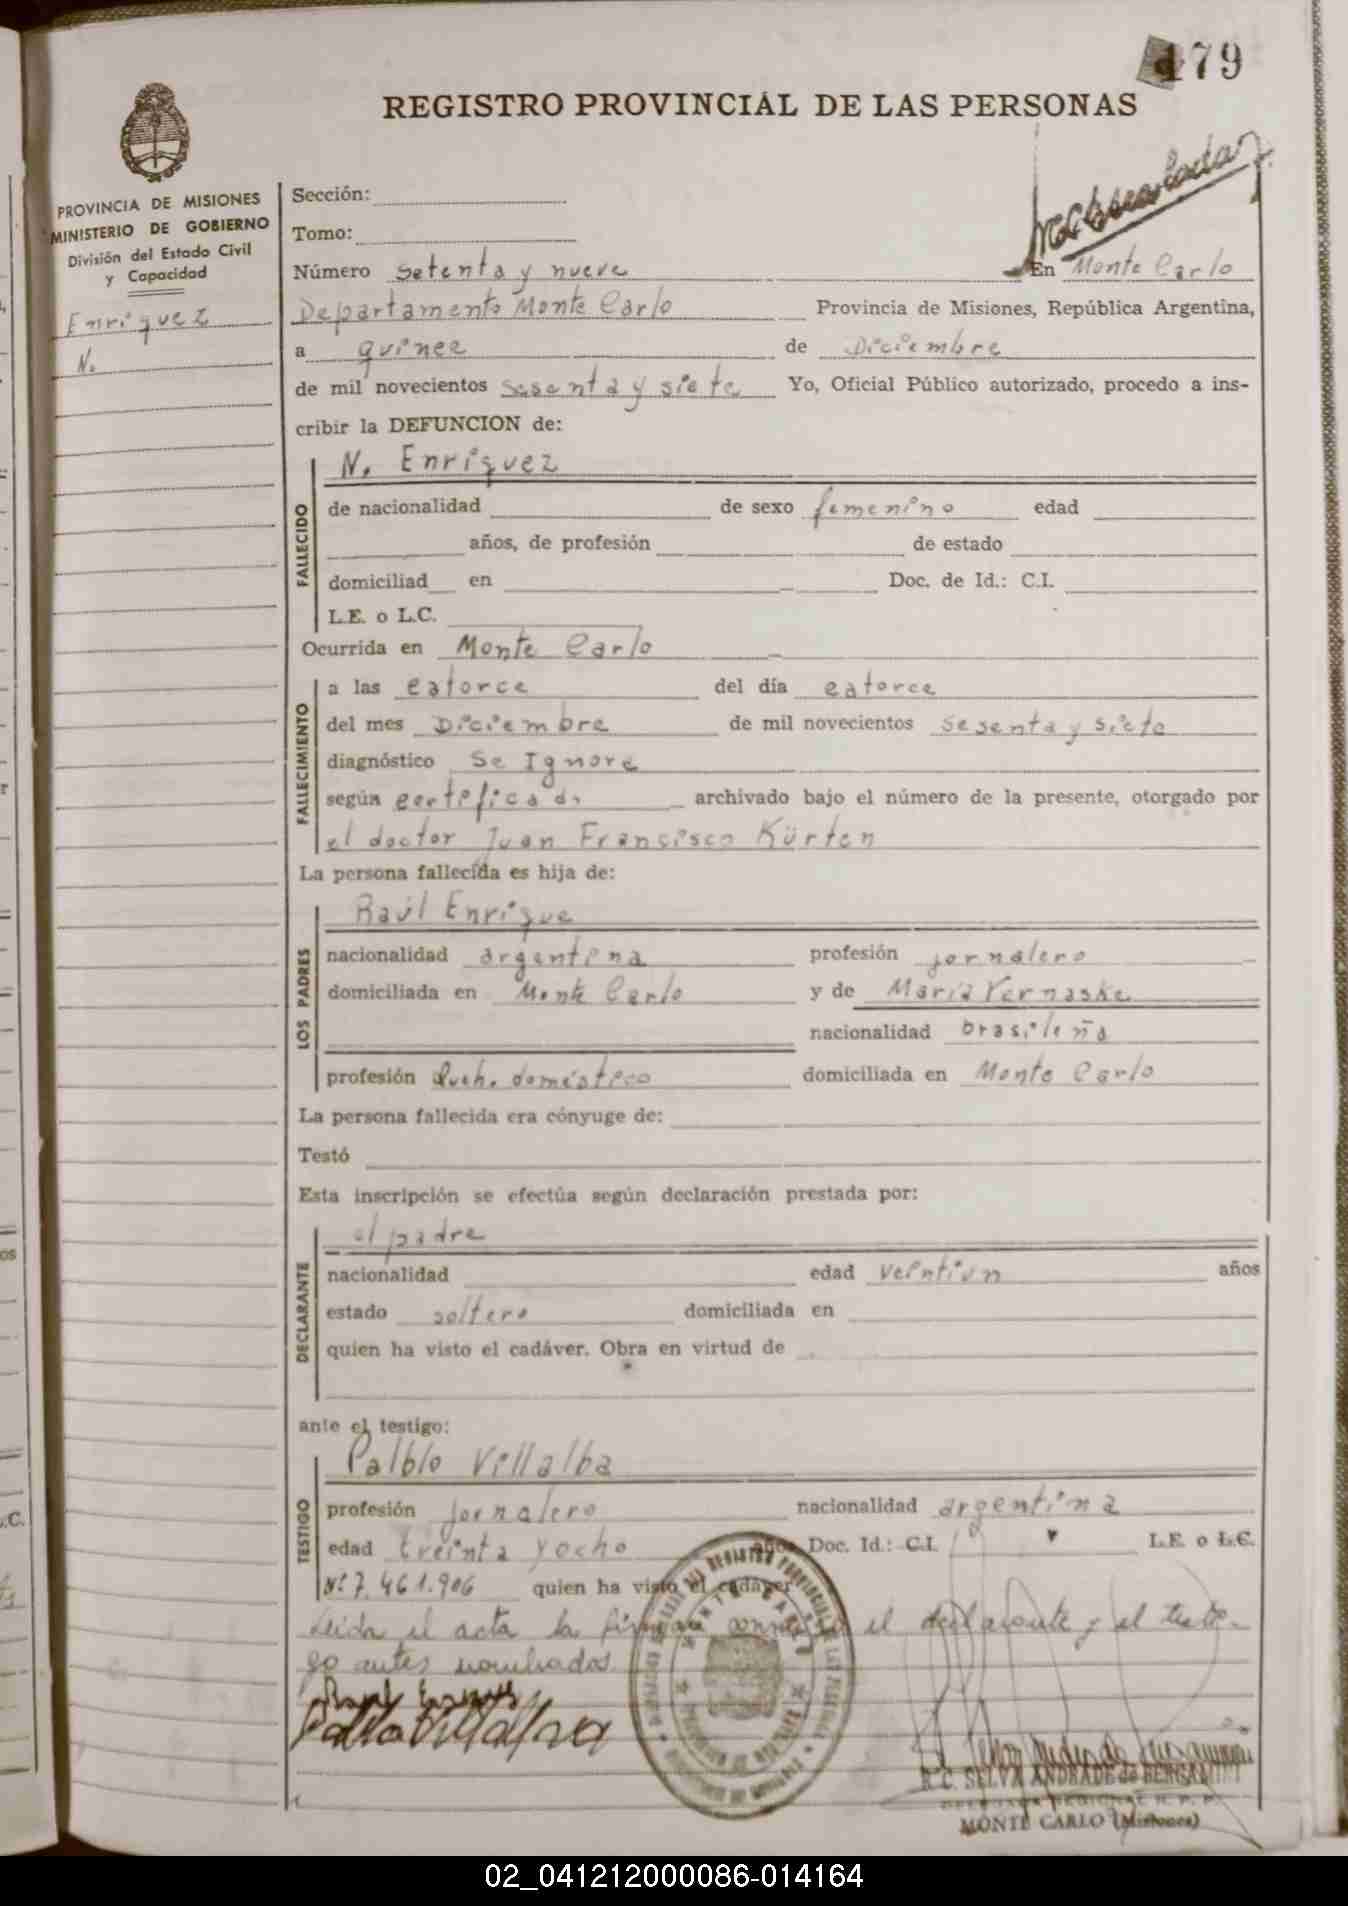 179
REGISTRO PROVINCIAL DE LAS PERSONAS
PROVINCIA DE MISIONES
MINISTERIO DE GOBIERNO
División del Estado Civil
y Capacidad
Enriquez
N.
Sección:
Tomo:
Número Setenta y nueve En Monte Carlo
Departamento Monte Carlo Provincia de Misiones, República Argentina,
a quince de Diciembre
de mil novecientos sesenta y siete Yo, Oficial Público autorizado, procedo a ins-
cribir la DEFUNCION de:
N. Enriquez
FALLECIDO
de nacionalidad de sexo femenino edad
años, de profesión de estado
domiciliad en Doc. de Id.: C.I.
L.E. o L.C.
Ocurrida en Monte Carlo
FALLECIMIENTO
a las catorce del día catorce
del mes Diciembre de mil novecientos sesenta y siete
diagnóstico Se Ignora
según certificado archivado bajo el número de la presente, otorgado por
el doctor Juan Francisco Kürten
La persona fallecida es hija de:
Raúl Enrique
LOS PADRES
nacionalidad argentina profesión jornalero
domiciliada en Monte Carlo y de María Vernaske
nacionalidad brasileña
profesión Queh. doméstico domiciliada en Monte Carlo
La persona fallecida era cónyuge de:
Testó
Esta inscripción se efectúa según declaración prestada por:
el padre
DECLARANTE
nacionalidad edad veintiun años
estado soltero domiciliada en
quien ha visto el cadáver. Obra en virtud de
ante el testigo:
Palblo Villalba
TESTIGO
profesión jornalero nacionalidad argentina
edad treinta y ocho años Doc. Id.: C.I. L.E. o L.C.
Nº 7.461.906 quien ha visto el cadáver
Leida el acta la firman conmigo el declarante y el testi-
go antes nombrados.
Pablo Villalba
R. C. SELVA ANDRADE de BERGAMINI
MONTE CARLO (Misiones)
02_041212000086-014164